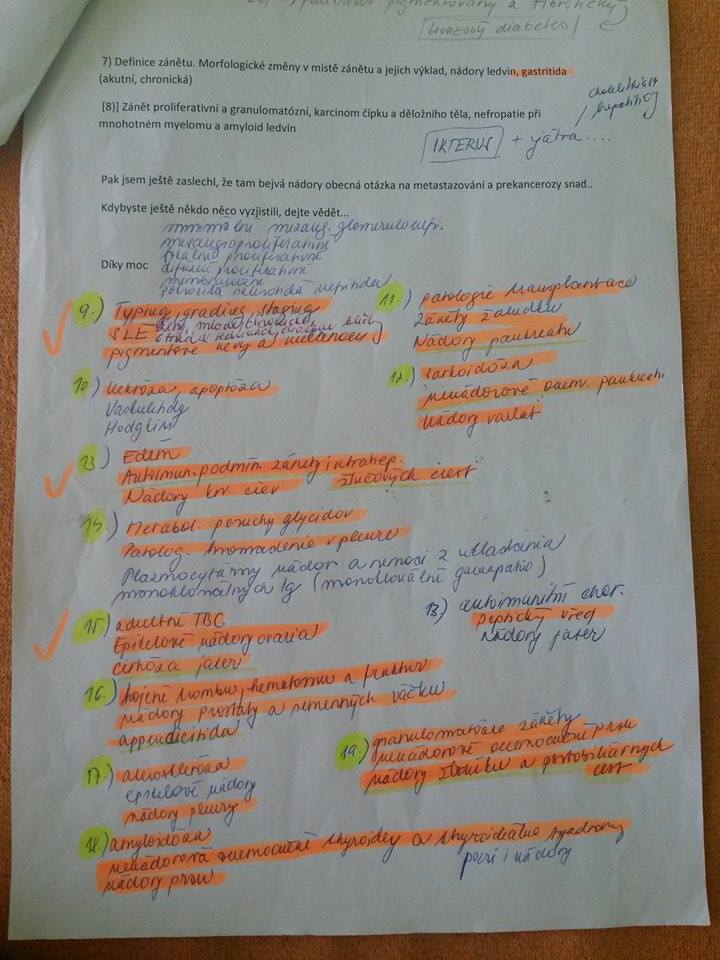 pigmentovaný a fibrotický
bronzový diabetes
7) Definice zánětu. Morfologické změny v místě zánětu a jejich výklad, nádory ledvin, gastritida
(akutní, chronická)
[8)] Zánět proliferativní a granulomatózní, karcinom čípku a děložního těla, nefropatie při
mnohotném myelomu a amyloid ledvin
IKTERUS + játra ....
Pak jsem ještě zaslechl, že tam bejvá nádory obecná otázka na metastazování a prekancerozy snad..
Kdybyste ještě někdo něco vyzjistili, dejte vědět...
minimální mezang. glomerulonefr.
mezangioproliferativní
fokálně proliferativní
difuzní proliferativní
membranózní
Díky moc
9.) Typing, grading, staging
SLE
pigmentové névy a melanomy
10.) Nekróza, apoptóza
Vaskulitidy
Hodgkin
11.) patologie transplantace
Záněty žaludku
Nádory pankreatu
12.) sarkoidóza
nenádorové onem. pankreatu
Nádory varlat
13.) Edém
Autoimun. podmín. záněty intrahep.
žlučových ciest
Nádory krv. ciev
14.) Metabol. poruchy glycidov
Patolog. hromadenie v pleure
Plazmocytárny nádor a nemoci z ukladania
monoklonálnych Ig (monoklonální gamapatie)
15.) adultní TBC
Epitelové nádory ovaria
cirhóza jater
13) autoimunitní chor.
peptický vřed
Nádory jater
16.) hojení trombu, hematomu a fraktur
nádory prostaty a semenných váčků
appendicitida
17.) ateroskleróza
epitelové nádory
nádory pleury
19.) granulomatózne záněty
nenádorové onemocnění prsu
nádory žlučníku a
cest
18.) amyloidóza
nenádorová onemocnění thyroidey a thyroideálne syndromy
nádory prsu